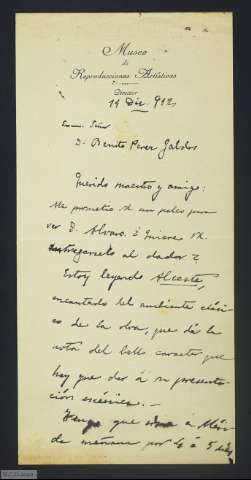 Museo
de
Reproducciones Artísticas
Director
14 Dic. 912
Excmo. Señor
D. Benito Perez Galdós
Querido maestro y amigo:
Me prometió V. un palco para
ver D. Alvaro. ¿Quiere V.
entregarselo al dador?
Estoy leyendo Alceste,
encantado del ambiente clási-
co de la obra, que dá la
nota del bello caracter que
hay que dar á su presenta-
ción escénica.—
Tengo que á
de mañana por 4 ó 5 dias